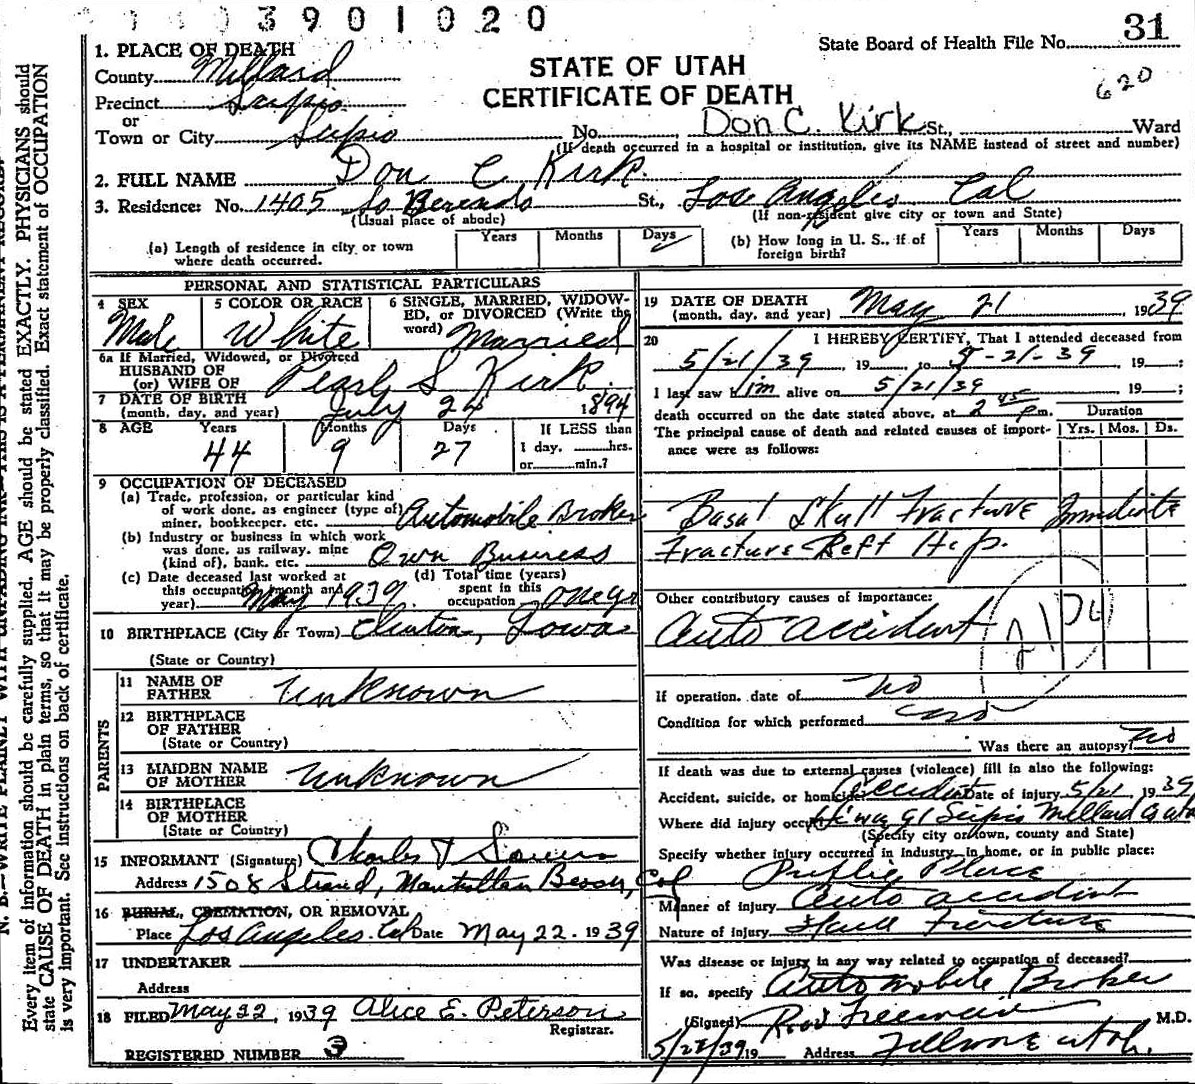 3901020
State Board of Health File No. 31
620
STATE OF UTAH
CERTIFICATE OF DEATH
1. PLACE OF DEATH
County Millard
Precinct Scipio
or
Town or City Scipio No. Don C. Kirk St., Ward
(If death occurred in a hospital or institution, give its NAME instead of street and number)
2. FULL NAME Don C. Kirk
3. Residence: No. 1405 So Berendo St., Los Angeles Cal
(Usual place of abode) (If non-resident give city or town and State)
(a) Length of residence in city or town where death occurred. Years Months Days
(b) How long in U. S., if of foreign birth? Years Months Days
PERSONAL AND STATISTICAL PARTICULARS
4 SEX Male
5 COLOR OR RACE White
6 SINGLE, MARRIED, WIDOWED, or DIVORCED (Write the word) Married
6a If Married, Widowed, or Divorced
HUSBAND OF
(or) WIFE OF Pearl S Kirk.
7 DATE OF BIRTH
(month, day, and year) July 24 1894
8 AGE Years 44 Months 9 Days 27 If LESS than 1 day, hrs. or min.?
9 OCCUPATION OF DECEASED
(a) Trade, profession, or particular kind
of work done, as engineer (type of)
miner, bookkeeper, etc. Automobile Broker
(b) Industry or business in which work
was done, as railway, mine
(kind of), bank, etc. Own Business
(c) Date deceased last worked at
this occupation (month and
year) May 1939.
(d) Total time (years)
spent in this
occupation one yr
10 BIRTHPLACE (City or Town) Clinton, Iowa
(State or Country)
PARENTS
11 NAME OF
FATHER Unknown
12 BIRTHPLACE
OF FATHER
(State or Country)
13 MAIDEN NAME
OF MOTHER Unknown
14 BIRTHPLACE
OF MOTHER
(State or Country)
15 INFORMANT (Signature) Charles
Address 1508 Strand, Manhattan Beach, Cal
16 BURIAL, CREMATION, OR REMOVAL
Place Los Angeles. Cal Date May 22. 1939
17 UNDERTAKER
Address
18 FILED May 22, 1939 Alice E. Peterson
Registrar.
REGISTERED NUMBER 3
19 DATE OF DEATH
(month, day, and year) May 21, 1939
20 I HEREBY CERTIFY, That I attended deceased from
5/21/39, 19 to 5-21-39, 19 ;
I last saw him alive on 5/21/39 19 ;
death occurred on the date stated above, at 2 45 p.m.
The principal cause of death and related causes of importance were as follows:
Duration
Yrs. Mos. Ds.
Basal Skull Fracture Immediate
Fracture Left Hip.
Other contributory causes of importance:
Auto accident
If operation, date of no
Condition for which performed
Was there an autopsy? no
If death was due to external causes (violence) fill in also the following:
Accident, suicide, or homicide? Accident Date of injury 5/21 1939
Where did injury occur? Hiway 91 Scipio Millard Co Utah
(Specify city or town, county and State)
Specify whether injury occurred in industry, in home, or in public place:
Public Place
Manner of injury Auto accident
Nature of injury Skull Fracture
Was disease or injury in any way related to occupation of deceased?
If so, specify Automobile Broker
(Signed) M.D.
5/22/39 19 Address Fillmore Utah.
N. B.—WRITE PLAINLY WITH UNFADING INK—THIS IS A PERMANENT RECORD.
Every item of information should be carefully supplied. AGE should be stated EXACTLY. PHYSICIANS should
state CAUSE OF DEATH in plain terms, so that it may be properly classified. Exact statement of OCCUPATION
is very important. See instructions on back of certificate.